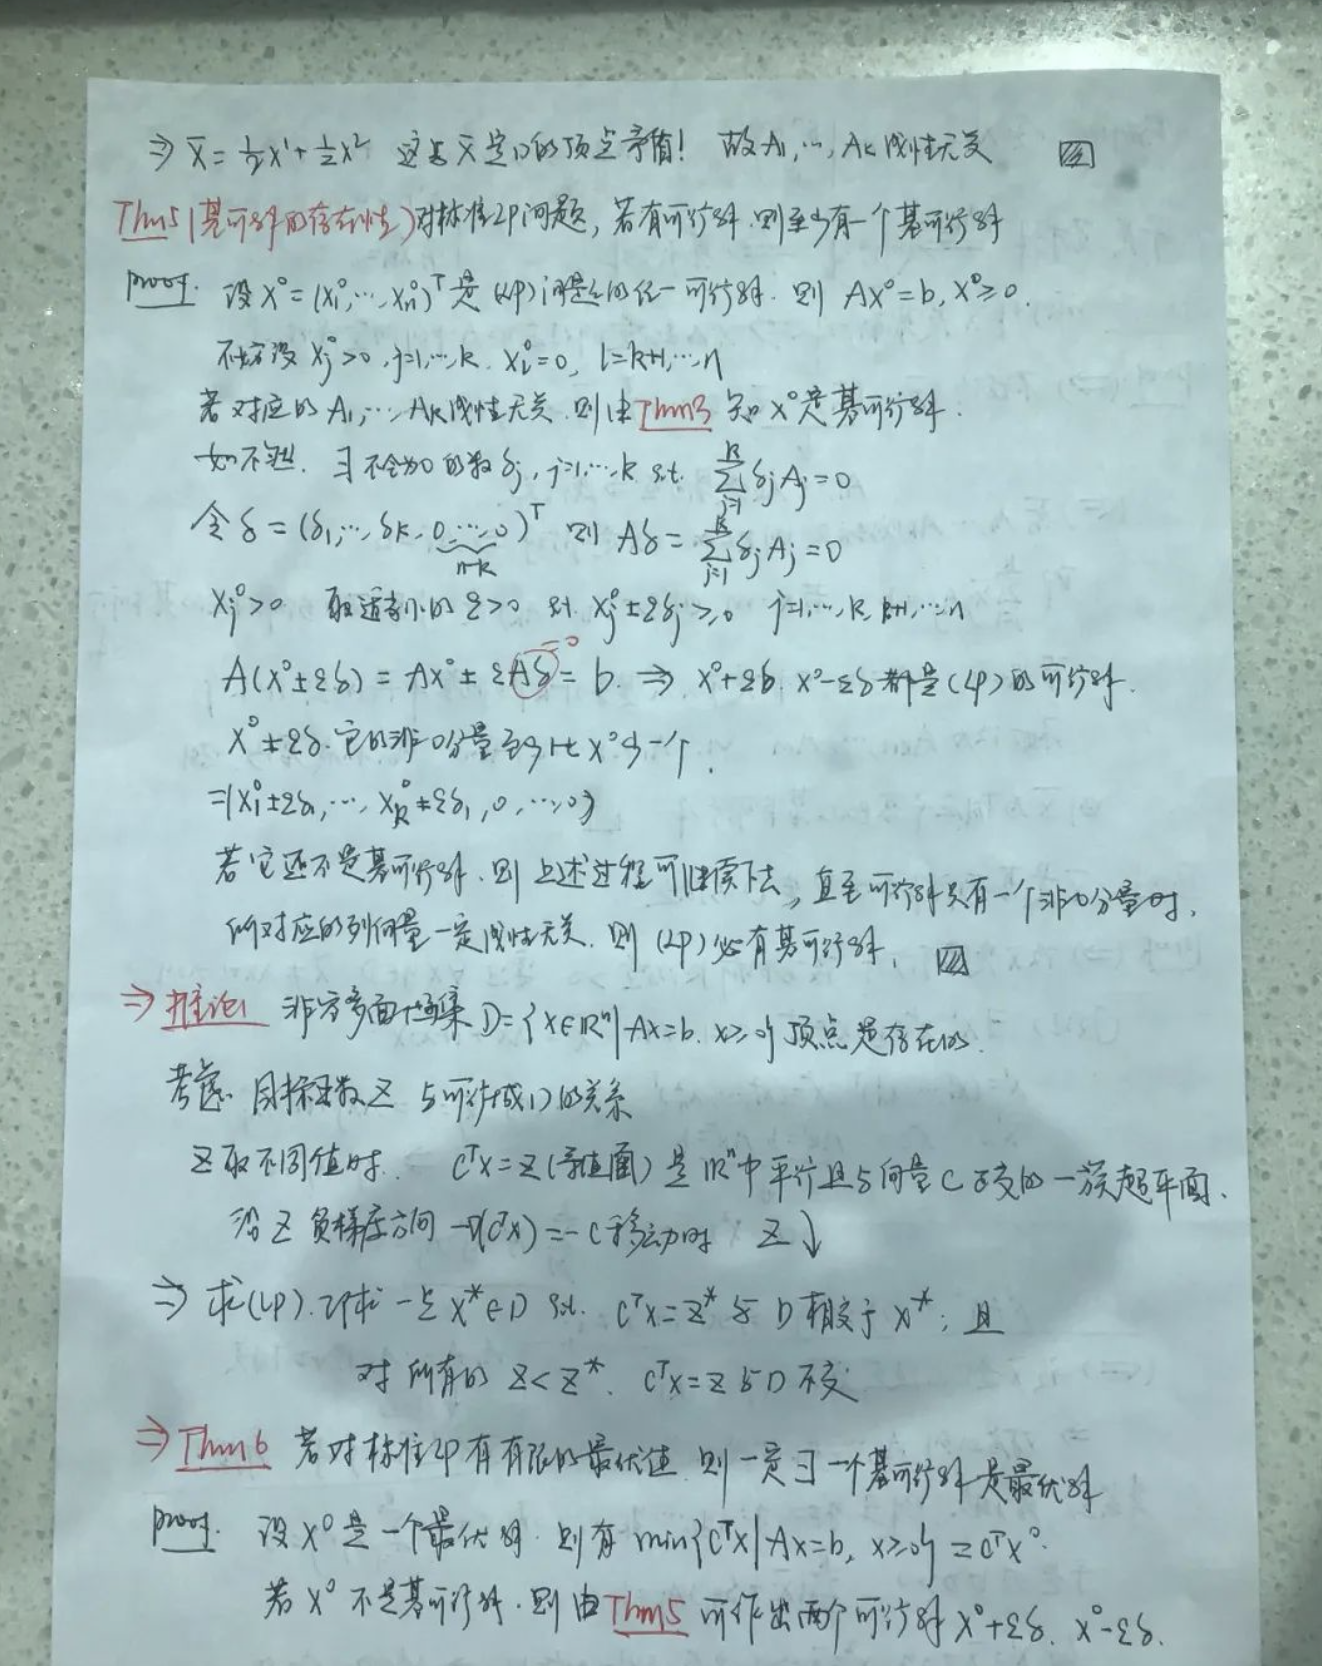 ⇒ x̄ = ½x¹ + ½x² 这与 x̄ 是D的顶点矛盾! 故 A₁,…, Aₖ 线性无关
Thm5 (基可行解的存在性) 对标准LP问题, 若有可行解, 则至少有一个基可行解
proof. 设 x⁰ = (x₁⁰,…, xₙ⁰)ᵀ 是 (LP) 问题的任一可行解. 则 Ax⁰=b, x⁰≥0.
不妨设 xⱼ⁰>0, j=1,…,k. xᵢ⁰=0, i=k+1,…,n
若对应的 A₁,…, Aₖ线性无关. 则由Thm3 知 x⁰是基可行解.
如不然. ∃ 不全为0的数 δⱼ, j=1,…,k s.t. ∑ⱼ₌₁ᵏ δⱼAⱼ=0
令 δ = (δ₁,…, δₖ, 0,…,0)ᵀ 则 Aδ = ∑ⱼ₌₁ᵏ δⱼAⱼ=0
n-k
xⱼ⁰>0 取适当小的 ε>0 s.t. xⱼ⁰±εδⱼ≥0 j=1,…,k, k+1,…,n
A(x⁰±εδ) = Ax⁰ ± εAδ = b. ⇒ x⁰+εδ, x⁰-εδ 都是(LP)的可行解.
=0
x⁰±εδ. 它的非0分量至少比x⁰少一个.
=(x₁⁰±εδ₁,…, xₖ⁰±εδ₁, 0,…,0)
若它还不是基可行解. 则上述过程可继续下去, 直至可行解只有一个非0分量时,
所对应的列向量一定线性无关. 则 (LP) 必有基可行解.
⇒ 推论1 非空多面凸集 D={x∈ℝⁿ| Ax=b. x≥0} 顶点是存在的.
考虑 目标函数 z 与可行域D的关系
z取不同值时. cᵀx=z (等值面) 是ℝⁿ中平行且与向量c正交的一族超平面.
沿z负梯度方向 -∇(cᵀx)=-c移动时 z↓
⇒ 求(LP). 即求一点 x*∈D s.t. cᵀx=z* 与 D 相交于 x*; 且
对所有的 z<z*. cᵀx=z与D不交
⇒ Thm6 若对标准LP有有限的最优值. 则一定∃一个基可行解是最优解
proof. 设 x⁰ 是一个最优解. 则有 min{cᵀx| Ax=b, x≥0} = cᵀx⁰.
若 x⁰ 不是基可行解. 则由Thm5 可作出两个可行解 x⁰+εδ, x⁰-εδ.